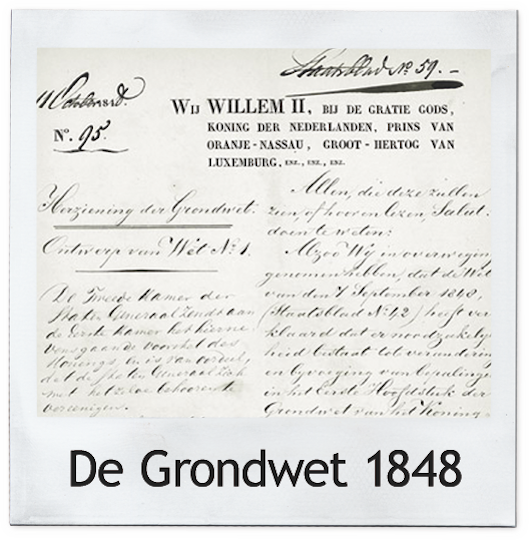 Staatsblad No. 59. –
11 October 1848.
No. 95.
WIJ WILLEM II, BIJ DE GRATIE GODS,
KONING DER NEDERLANDEN, PRINS VAN
ORANJE-NASSAU, GROOT-HERTOG VAN
LUXEMBURG, ENZ., ENZ., ENZ.
Herziening der Grondwet.
Ontwerp van Wet No. 1.
De Tweede Kamer der
Staten Generaal zendt aan
de Eerste Kamer het hierne-
vensgaande voorstel des
Konings, en is van oordeel,
dat de Staten Generaal zich
met hetzelve behooren te
vereenigen.
Allen, die deze zullen
zien, of hooren lezen, Salut.
doen te weten:
Alzoo Wij in overweging
genomen hebben, dat de Wet
van den 7 September 1848,
(Staatsblad No. 42) heeft ver-
klaard dat er noodzakelijk
heid bestaat tot verandering
en bijvoeging van bepalingen
in het Eerste Hoofdstuk der
Grondwet van het Koning-
De Grondwet 1848